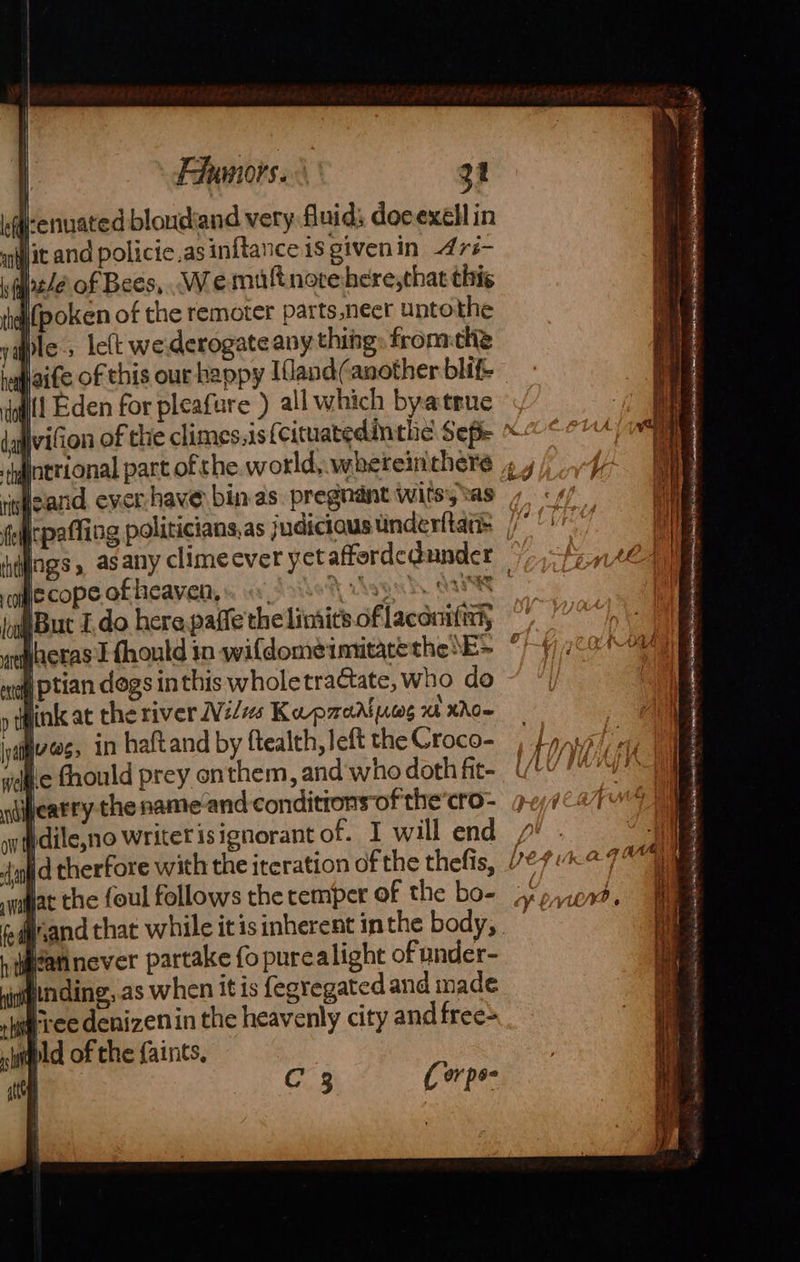 Humors. 31
tenuated bloud and very fluid; doe exell in
it and policie, as inſtance is given in Ari-
of Bees, We muſt note here, that this
ſpoken of the remoter parts, neer unto the
leſt we derogate any thing from the
of this our happy Iſland (another bliſ-
Eden for pleaſure) all which by a true
viſion of the climes, is ſcituated in the Sep-
ntrional part of the world, wherein there
and ever have bin as pregnant wits, as
paſſing politicians, as judicious underſtan-
ngs, as any clime ever yet afforded under
cope of heaven,
But I do here paſſe the limits of laconiſm,
heras I ſhould in wiſdome imitate the E-
ptian dogs in this whole tractate, who do
ink at the river Nilus
in haſt and by ſtealth, leſt the Croco-
e ſhould prey on them, and who doth fit-
carry the name and conditions of the cro-
dile, no writer is ignorant of. I will end
d therfore with the iteration of the theſis,
at the ſoul follows the temper of the bo-
and that while it is inherent in the body,
can never partake ſo pure a light of under-
nding, as when it is ſegregated and made
free denizen in the heavenly city and free-
ld of the ſaints.
C 3 Corpo-